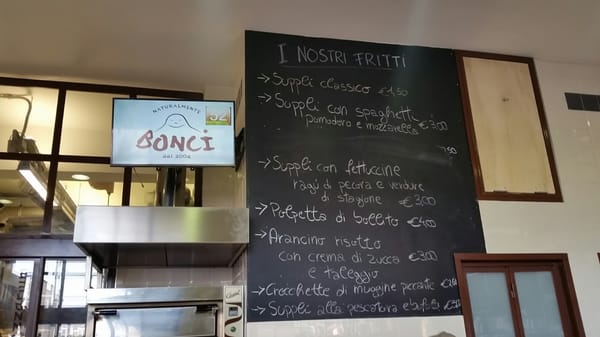 NATURALMENTE
BONCI
dal 2003
32
I NOSTRI FRITTI
→ Supplì classico €1,50
→ Supplì con spaghetti
pomodoro e mozzarella €3,00
→ Supplì con fettuccine
ragù di pecora e verdure
di stagione €3,00
→ Polpetta di bollito €4,00
→ Arancino risotto
con crema di zucca €3,00
e taleggio
→ Crocchette di muggine piccante
→ Supplì alla pescatora e bufala